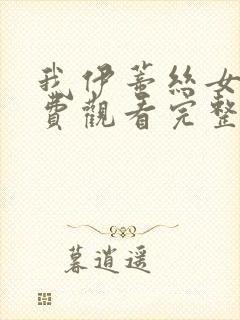 我伊蒂絲女
費觀看完整
暮逍遥